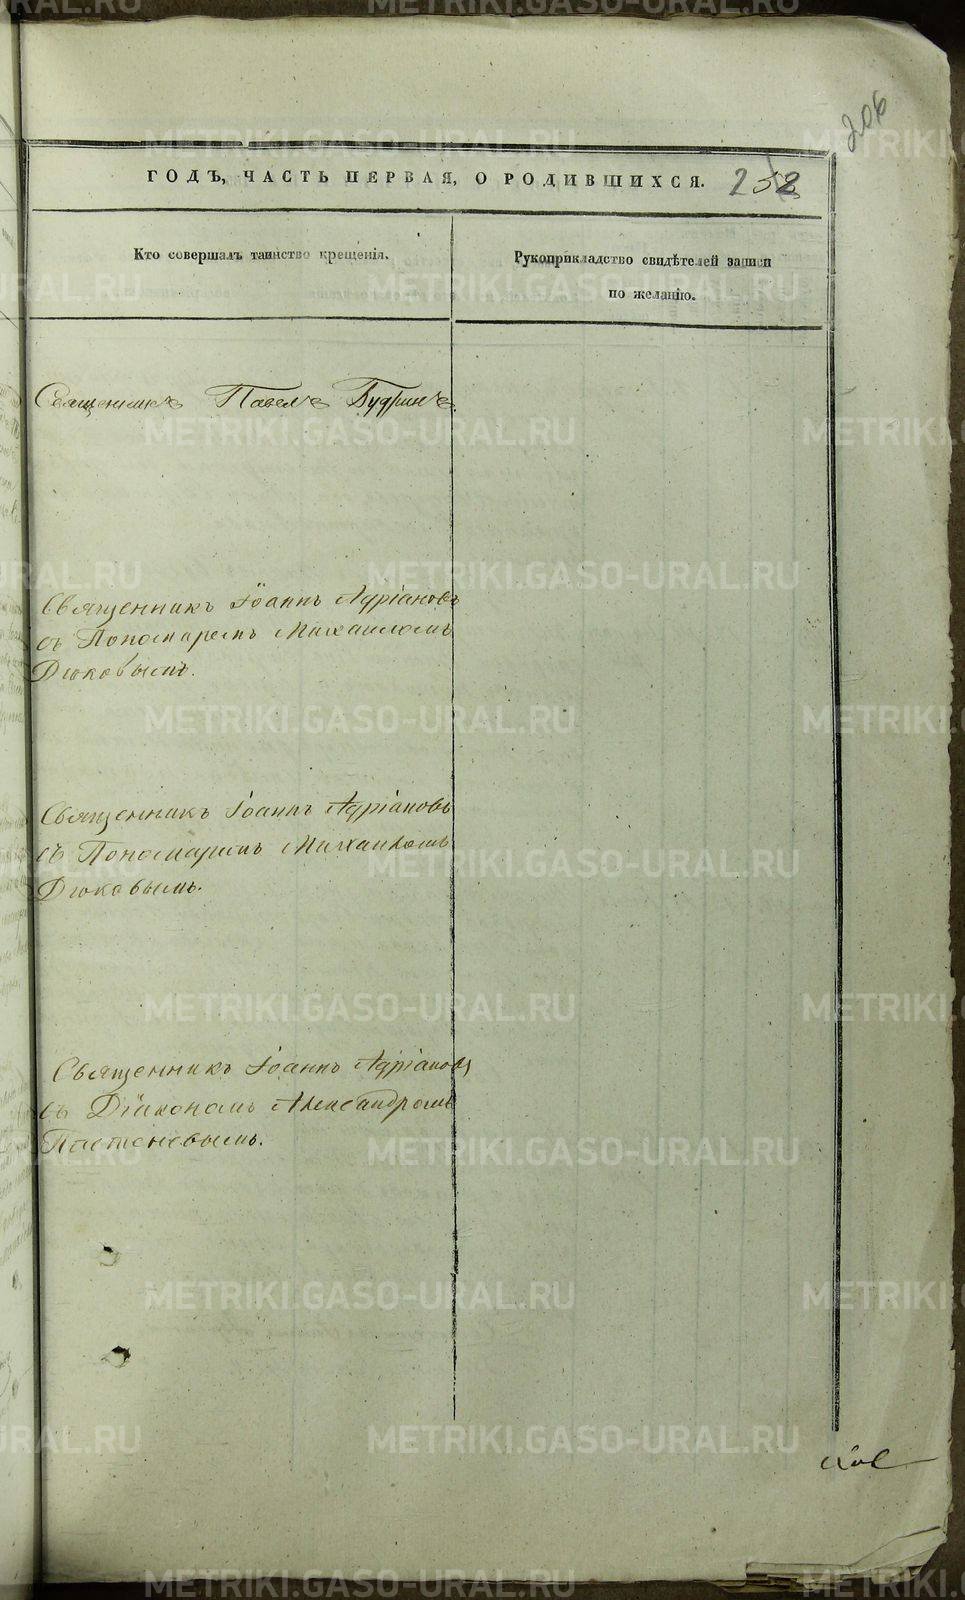 206
ГОДЪ, ЧАСТЬ ПЕРВАЯ, О РОДИВШИХСЯ. 252
Кто совершалъ таинство крещенія.
Рукоприкладство свидѣтелей записи
по желанію.
Священникъ Павелъ Будринъ.
Священникъ Іоаннъ Адріановъ
съ Пономаремъ Михаиломъ
Дюковымъ.
Священникъ Іоаннъ Адріановъ
съ Пономаремъ Михаиломъ
Дюковымъ.
Священникъ Іоаннъ Адріановъ
съ Діакономъ Александромъ
METRIKI.GASO-URAL.RU